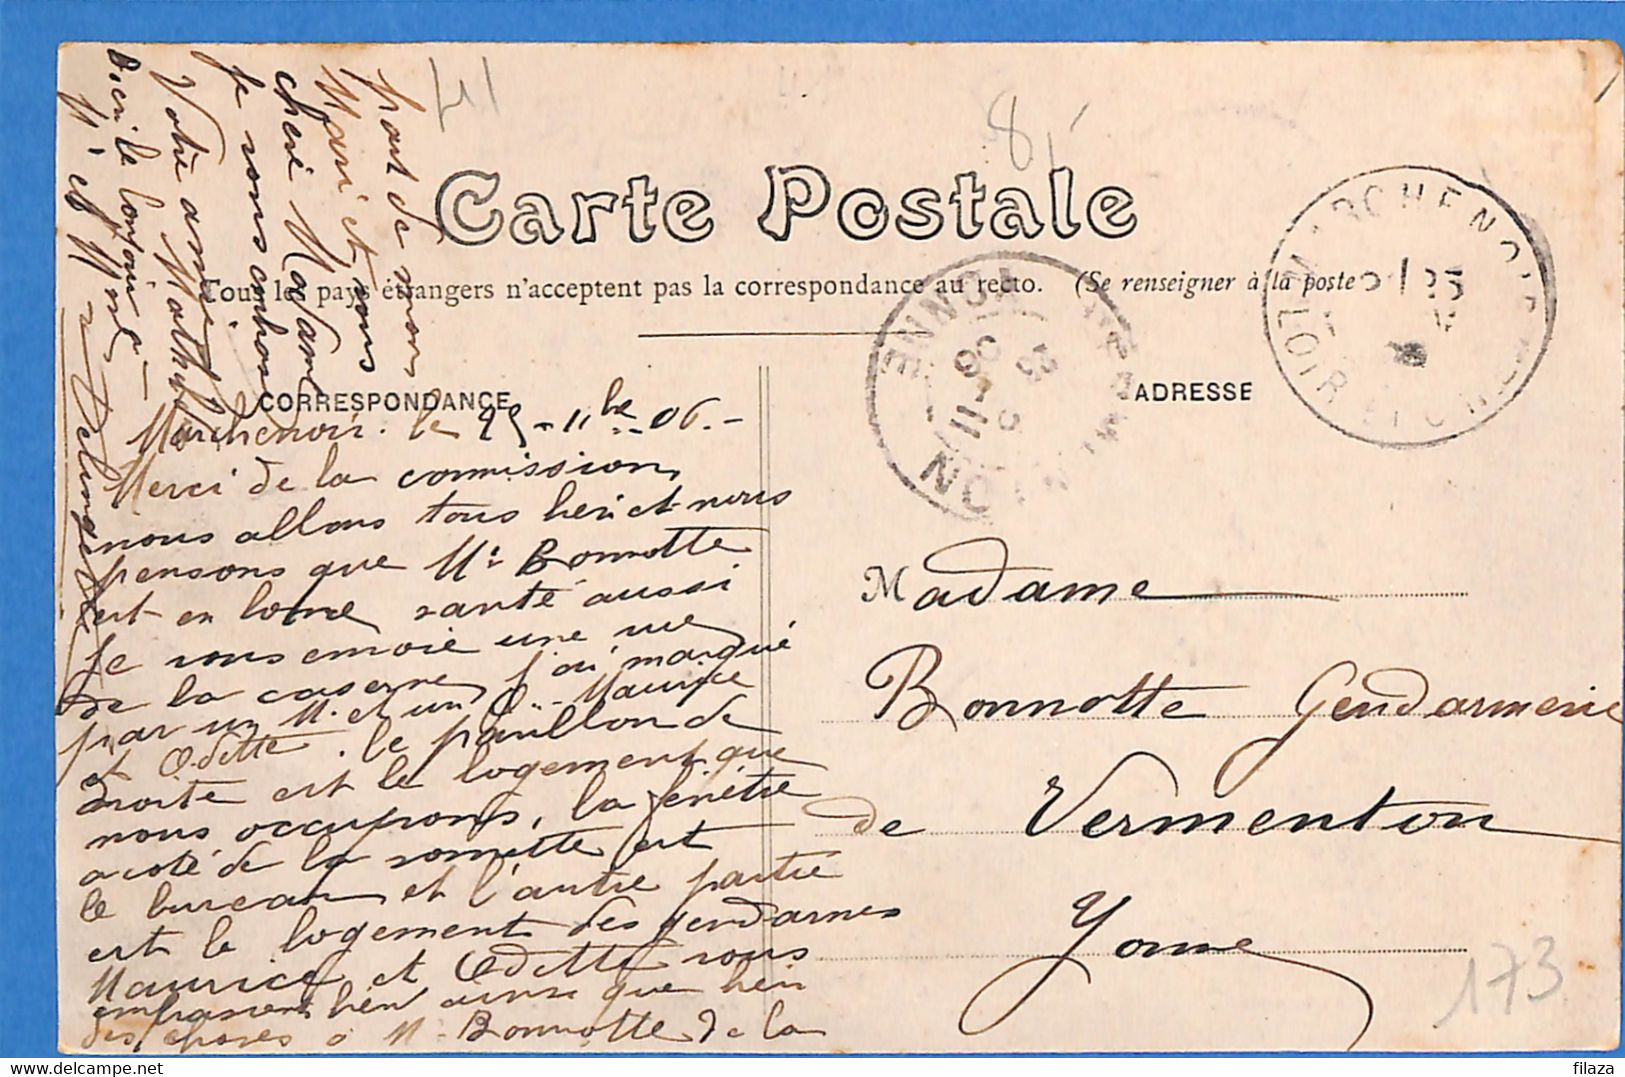 Carte Postale
Tous les pays étrangers n'acceptent pas la correspondance au recto. (Se renseigner à la poste
CORRESPONDANCE
ADRESSE
MARCHENOIR
LOIR ET CHER
YONNE
25 11 06
Marchenoir. le 25 - 11bre 06. -
Merci de la commission,
nous allons tous bien et nous
pensons que Mr Bonnotte
est en bonne santé aussi
Je vous envoie une vue
de la caserne, j'ai marqué
par un M. et un O. Maurice
et Odette. le pavillon de
droite est le logement que
nous occupons, la fenêtre
a coté de la sonnette est
le bureau et l'autre partie
est le logement des gendarmes
Maurice et Odette vous
embrassent bien ainsi que bien
des choses à Mr Bonnotte de la
part de mon
Mari et vous
chère Madame
je vous embrasse
Votre amie Mathilde
Bien le bonjour à
Mr et Mme
Madame
Bonnotte Gendarmerie
de Vermenton
Yonne
173
filaza